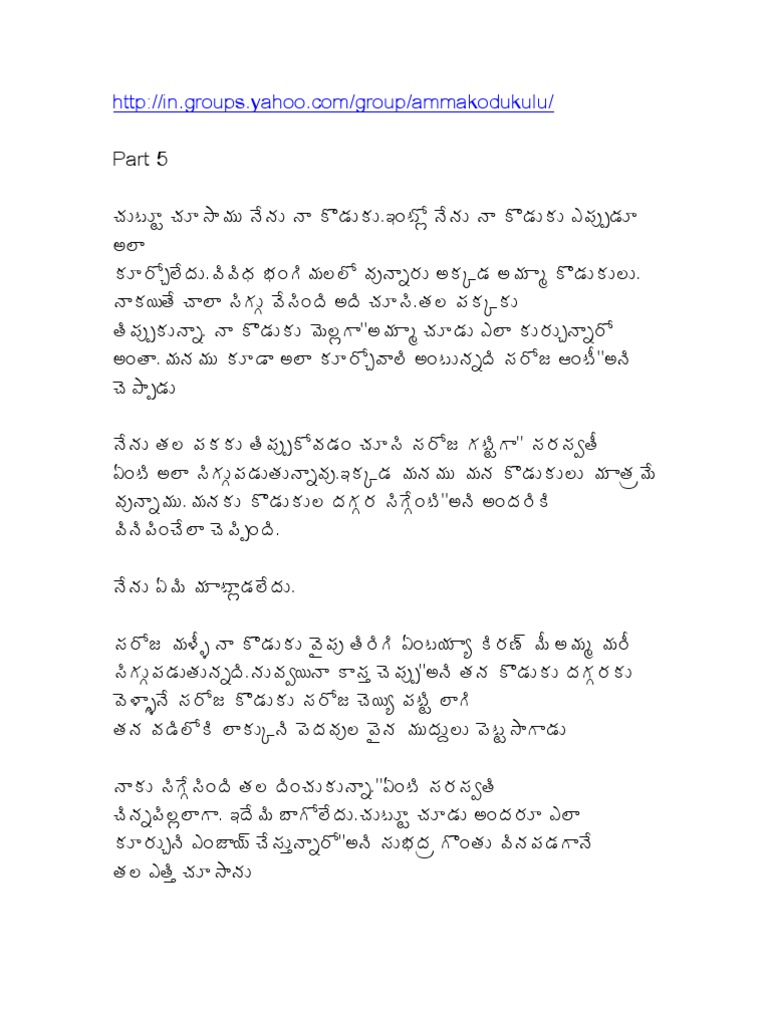 http://in.groups.yahoo.com/group/ammakodukulu/
Part 5
చుట్టూ చూసాము నేను నా కొడుకు.ఇంట్లో నేను నా కొడుకు ఎప్పుడూ
అలా
కూర్చోలేదు.వివిధ భంగిమలలో వున్నారు అక్కడ అమ్మా కొడుకులు.
నాకయితే చాలా సిగ్గు వేసింది అది చూసి.తల పక్కకు
తిప్పుకున్నా. నా కొడుకు మెల్లగా"అమ్మా చూడు ఎలా కుర్చున్నారో
అంతా. మనము కూడా అలా కూర్చోవాలి అంటున్నది సరోజ ఆంటీ"అని
చెప్పాడు
నేను తల పకకు తిప్పుకోవడం చూసి సరోజ గట్టిగా" సరస్వతీ
ఏంటి అలా సిగ్గుపడుతున్నావు.ఇక్కడ మనము మన కొడుకులు మాత్రమే
వున్నాము. మనకు కొడుకుల దగ్గర సిగ్గేంటి"అని అందరికి
వినిపించేలా చెప్పింది.
నేను ఏమి మాట్లాడలేదు.
సరోజ మళ్ళీ నా కొడుకు వైపు తిరిగి ఏంటయ్యా కిరణ్ మీ అమ్మ మరీ
సిగ్గుపడుతున్నది.నువ్వయినా కాస్త చెప్పు"అని తన కొడుకు దగ్గరకు
వెళ్ళానే సరోజ కొడుకు సరోజ చెయ్యి పట్టి లాగి
తన వడిలోకి లాక్కుని పెదవుల పైన ముద్దులు పెట్టసాగాడు
నాకు సిగ్గేసింది తల దించుకున్నా."ఏంటి సరస్వతి
చిన్నపిల్లలాగా. ఇదేమి బాగోలేదు.చుట్టూ చూడు అందరూ ఎలా
కూర్చుని ఎంజాయ్ చేస్తున్నారో"అని సుభద్ర గొంతు వినపడగానే
తల ఎత్తి చూసాను